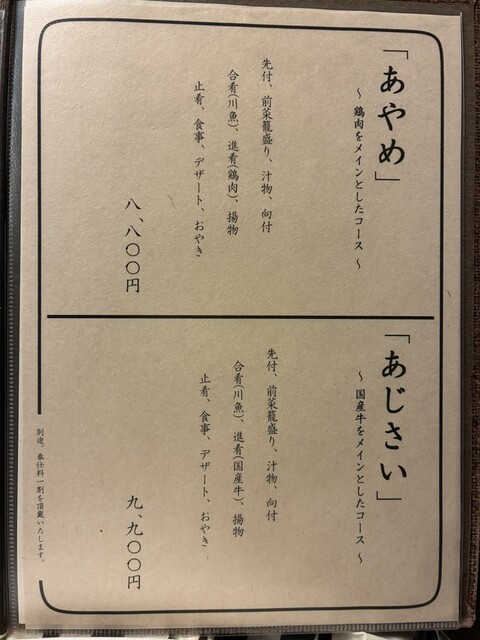 「あやめ」
～ 鶏肉をメインとしたコース ～
先付、前菜籠盛り、汁物、向付
合肴(川魚)、進肴(鶏肉)、揚物
止肴、食事、デザート、おやき
八、八〇〇円
「あじさい」
～ 国産牛をメインとしたコース ～
先付、前菜籠盛り、汁物、向付
合肴(川魚)、進肴(国産牛)、揚物
止肴、食事、デザート、おやき
九、九〇〇円
別途、奉仕料一割を頂戴いたします。